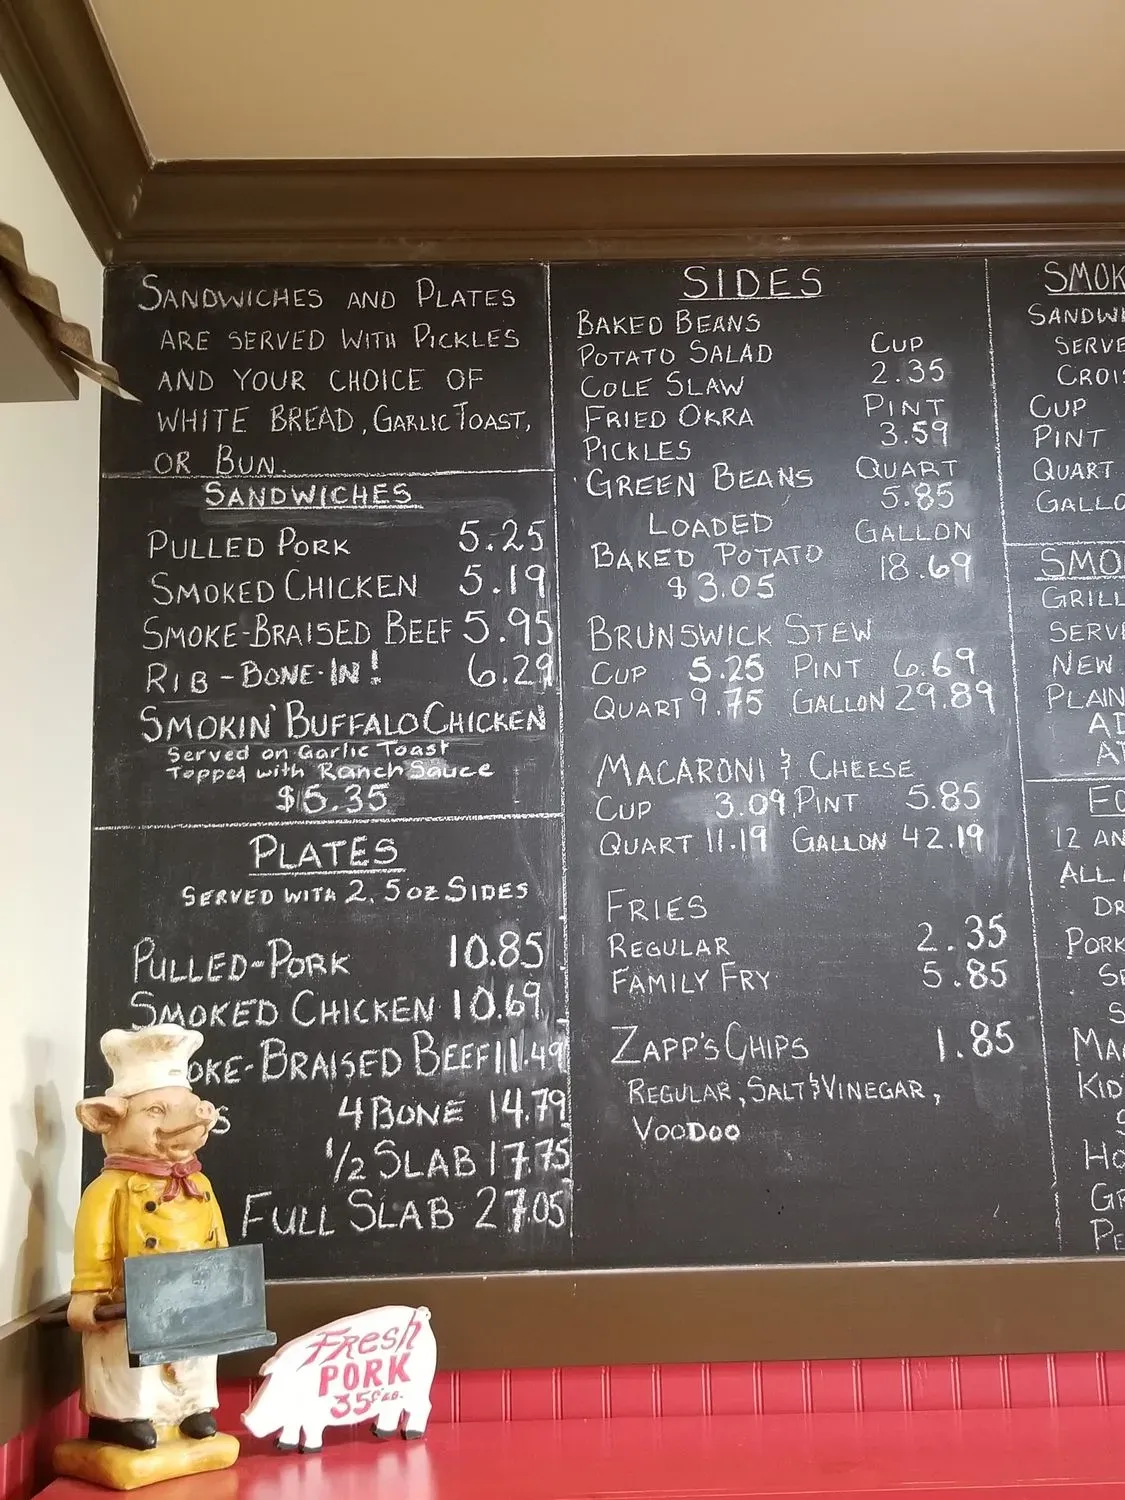 SANDWICHES AND PLATES
ARE SERVED WITH PICKLES
AND YOUR CHOICE OF
WHITE BREAD, GARLIC TOAST,
OR BUN.
SANDWICHES
PULLED PORK 5.25
SMOKED CHICKEN 5.19
SMOKE-BRAISED BEEF 5.95
RIB-BONE-IN! 6.29
SMOKIN' BUFFALO CHICKEN
Served on Garlic Toast
Topped with Ranch Sauce
PLATES
SERVED WITH 2.5OZ SIDES
PULLED-PORK 10.85
SMOKED CHICKEN 10.69
OKE-BRAISED BEEF 11.49
S 4 BONE 14.79
1/2 SLAB 17.75
FULL SLAB 27.05
SIDES
BAKED BEANS
POTATO SALAD
COLE SLAW
FRIED OKRA
PICKLES
GREEN BEANS
CUP
2.35
PINT
3.59
QUART
5.85
GALLON
18.69
LOADED
BAKED POTATO
$3.05
BRUNSWICK STEW
CUP 5.25 PINT 6.69
QUART 9.75 GALLON 29.89
MACARONI & CHEESE
CUP 3.09 PINT 5.85
QUART 11.19 GALLON 42.19
FRIES
REGULAR 2.35
FAMILY FRY 5.85
ZAPP'S CHIPS 1.85
REGULAR, SALT & VINEGAR,
VOODOO
SMOK
SANDWI
SERVE
CROIS
CUP
PINT
QUART
GALLO
SMO
GRILL
SERVE
NEW
PLAIN
AD
A
12 AN
ALL
DR
PORK
SE
S
MA
KID'
HO
GR
PE
Fresh
PORK
35¢